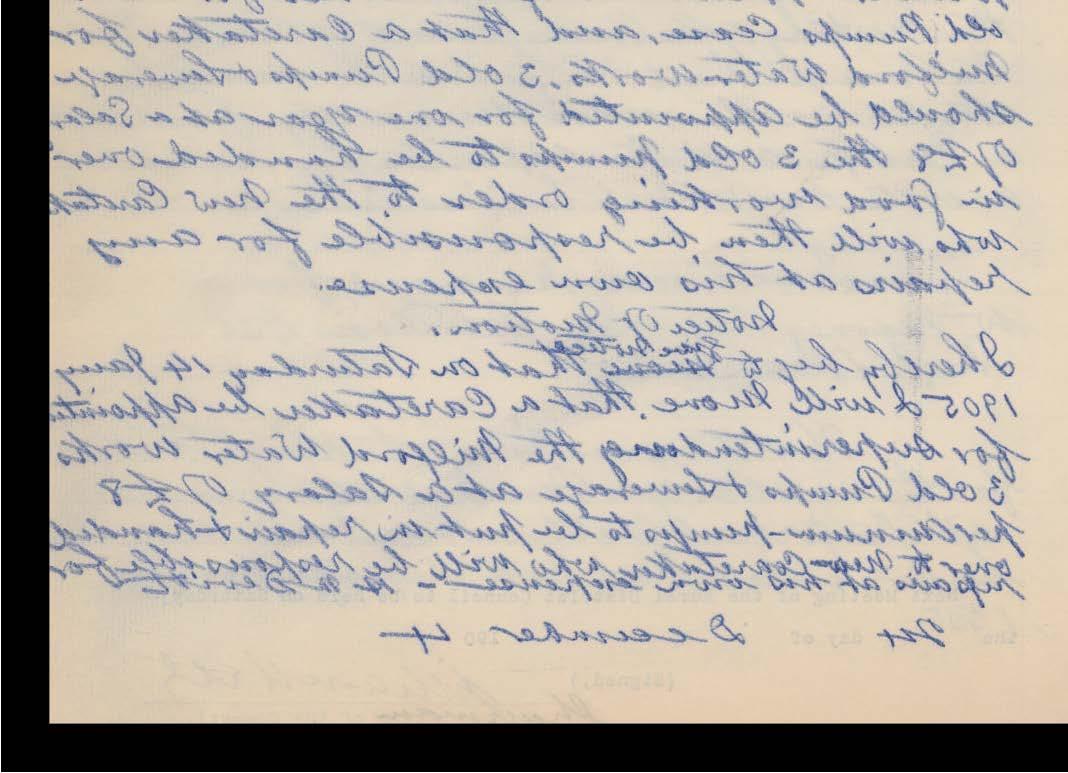 old Pumps cease, and that a Caretaker for
Milford Waterworks. 3 old Pumps & Sewerage
should be appointed for one year at a Salar
of £8 the 3 old pumps to be handed over
in good working order to the new Caretak
who will then be responsible for any
repairs at his own expense.
Notice of Motion.
give notice
I hereby beg to move that on Saturday 14 Jany
1905 I will move that a Caretaker be appointe
for superintending the Milford Water Works
3 old Pumps & Sewerage at a Salary of £8
per annum - pumps to be put in repair & handed
over to new Caretaker who will be responsible for
repairs at his own expense -
Meeting of the Rural District Council to be held on Saturday,
24 December 4
the day of 190
(Signed,)
Chairman